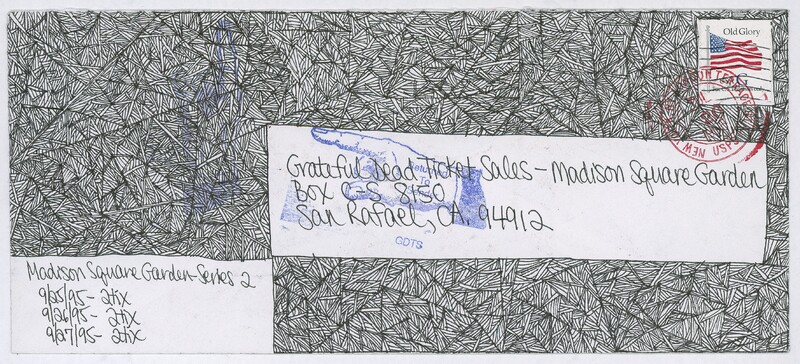 Old Glory
Grateful Dead Ticket Sales - Madison Square Garden
Box C-S 8150
San Rafael, CA. 94912
Return
To
GDTS
Madison Square Garden - Series 2
9/25/95 - 2tix
9/26/95 - 2tix
9/27/95 - 2tix
USPS